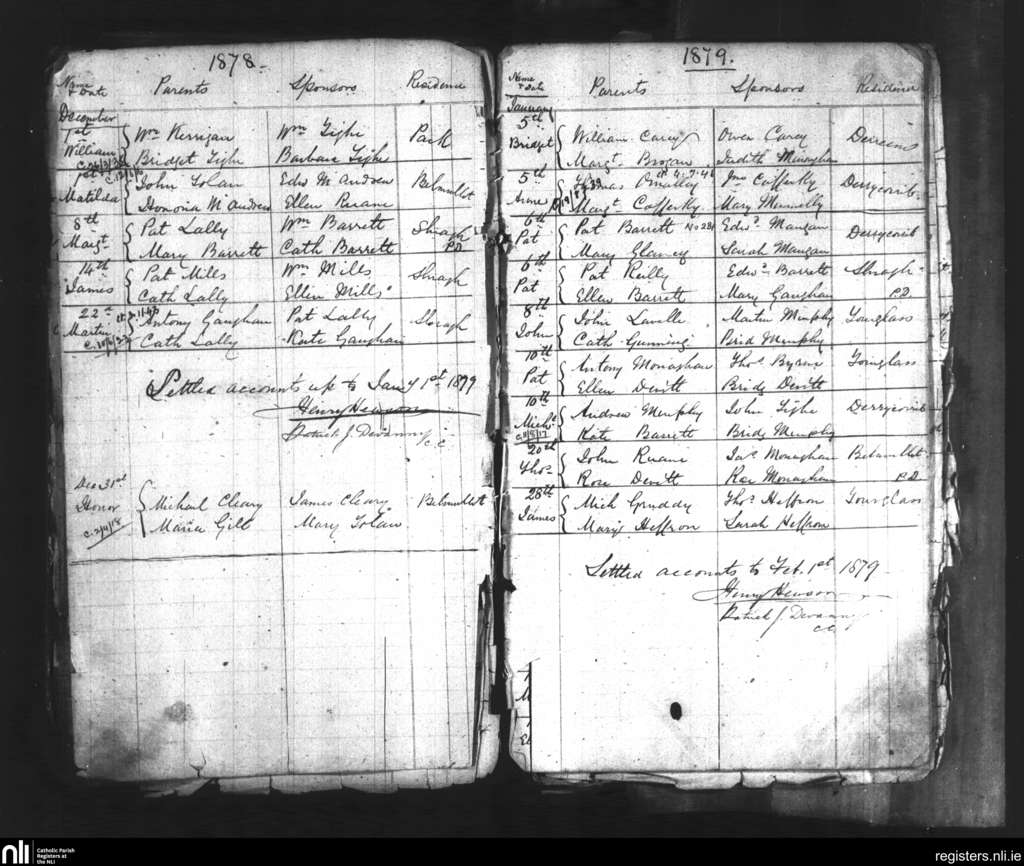 1878
Name & Date Parents Sponsors Residence
December
1st Wm Kerrigan Wm Tighe Park
William Bridget Tighe Barbara Tighe
1st John Tolan Edw McAndrew Belmullet
Matilda Honoria McAndrew Ellen Ruane
8th Pat Lally Wm Barrett Shragh
Margt Mary Barrett Cath Barrett P.D.
14th Pat Mills Wm Mills Shragh
James Cath Lally Ellen Mills
22d Antony Gaughan Pat Lally Shragh
Martin Cath Lally Kate Gaughan
Settled accounts up to Jany 1st 1879
Henry Hewson
Patrick J. Devanny
C.C.
Dec 31st
Honor Michael Cleary James Cleary Belmullet
c. 2/4/18 Maria Gilt Mary Tolan
1879.
Name & Date Parents Sponsors Residence
January
5th William Carey Owen Carey Derreens
Bridget Margt Brogan Judith Monaghan
5th Thomas Omalley Jno Cafferky Derrycorrib
Anne Margt Cafferky Mary Munnelly
6th Pat Barrett Edwd Mangan Derrycorrib
Pat Mary Glancy Sarah Mangan
6th Pat Reilly Edwd Barrett Shragh
Pat Ellen Barrett Mary Gaughan P.D.
8th John Lavelle Martin Murphy Tourglass
John Cath Gunning Brid Murphy
10th Antony Monaghan Thos Byrne Tourglass
Pat Ellen Devitt Bridg Devitt
10th Andrew Murphy John Tighe Derrycorrib
Michl Kate Barrett Bridg Murphy
20th John Ruane Jas Monaghan Belmullet
Thos Rose Devitt Rose Monaghan P.D.
28th Mich Gruddy Thos Heffron Tourglass
James Marg Heffron Sarah Heffron
Settled accounts to Feb. 1st 1879
Henry Hewson
Patrick J. Devanny
C.C.
nli Catholic Parish
Registers at
the NLI
registers.nli.ie